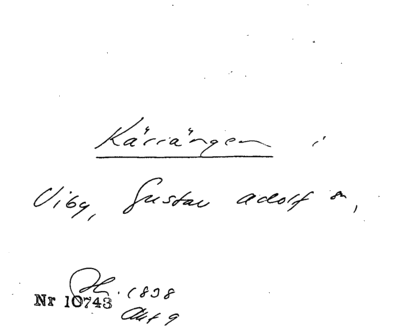 Kärrängen i
Viby, Gustav Adolf sn,
1838
Nr 10743
Akt 9